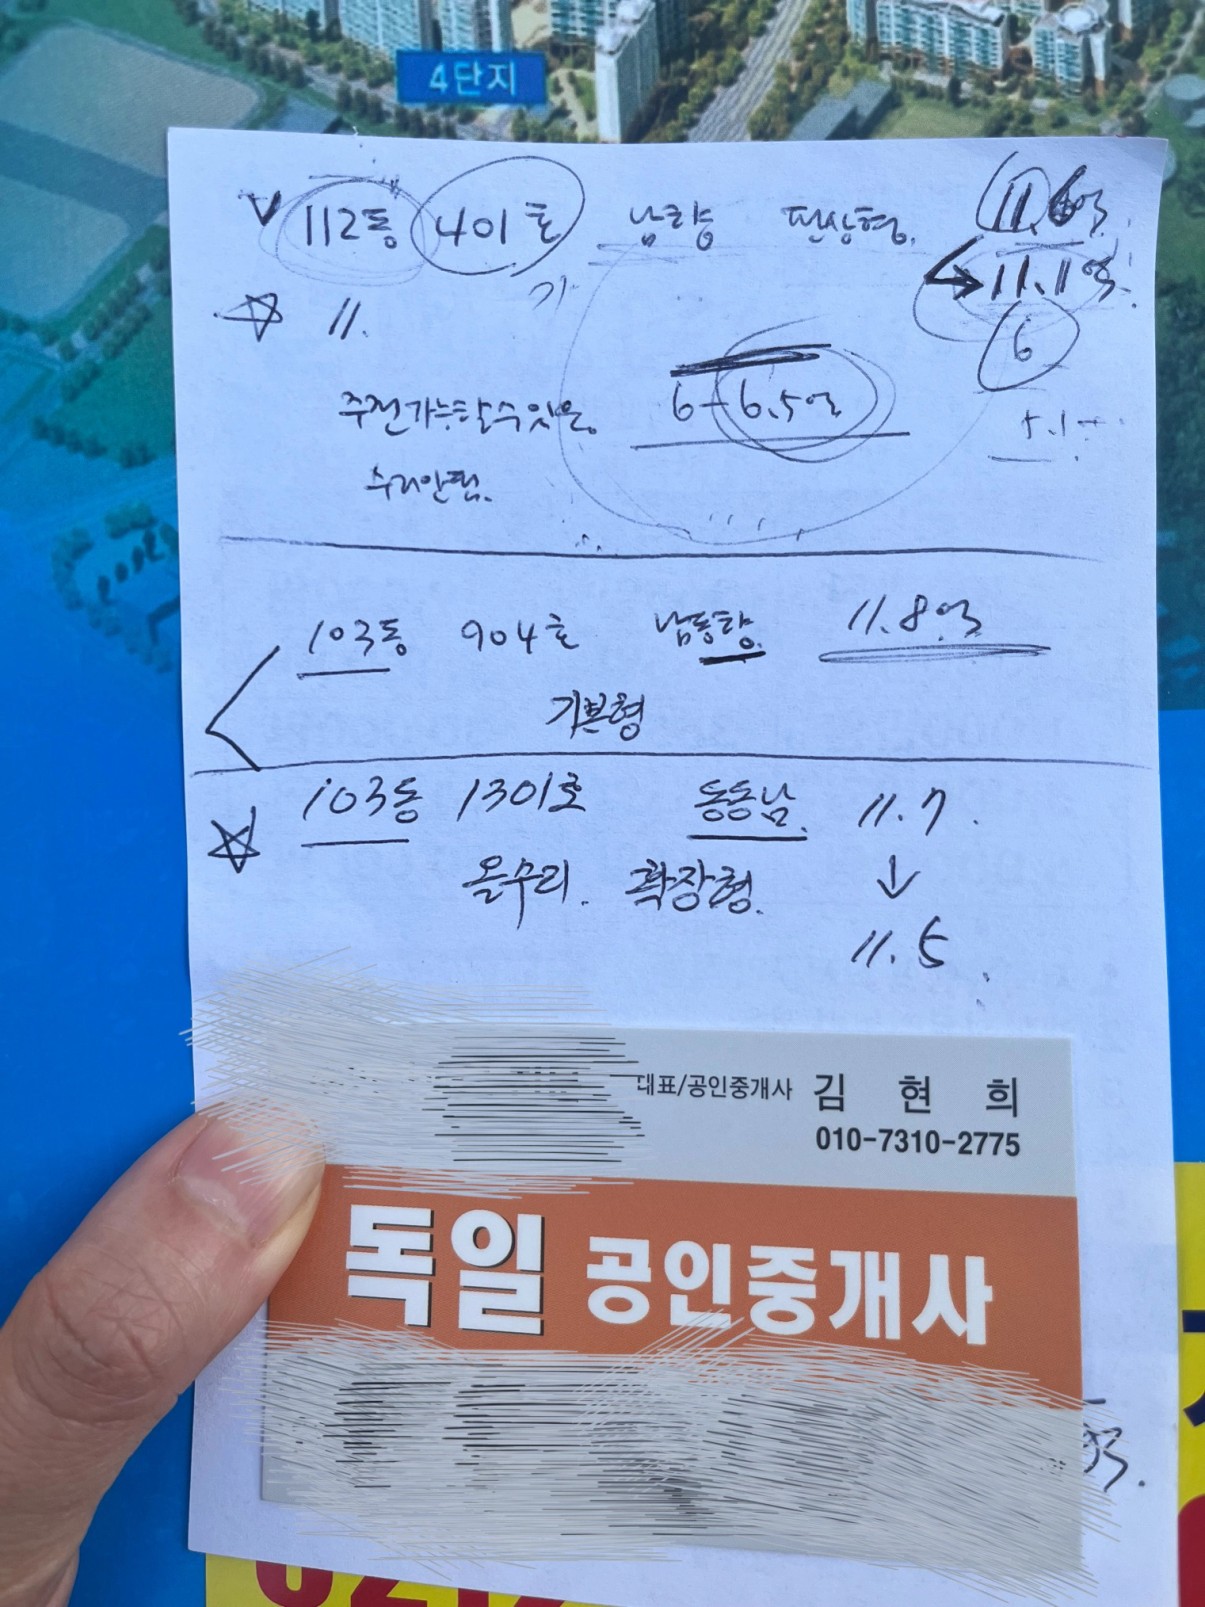 4단지
V 112동 401호 남향 판상형. 11.6억
→ 11.1억.
☆ 11. 가
6
6-6.5억
주전가능할수있음.
5.1
수리안됨.
103동 904호 남동향. 11.8억
기본형
103동 1301호 동동남. 11.7.
☆
올수리. 확장형. ↓
11.5.
대표/공인중개사 김 현 희
010-7310-2775
독일 공인중개사